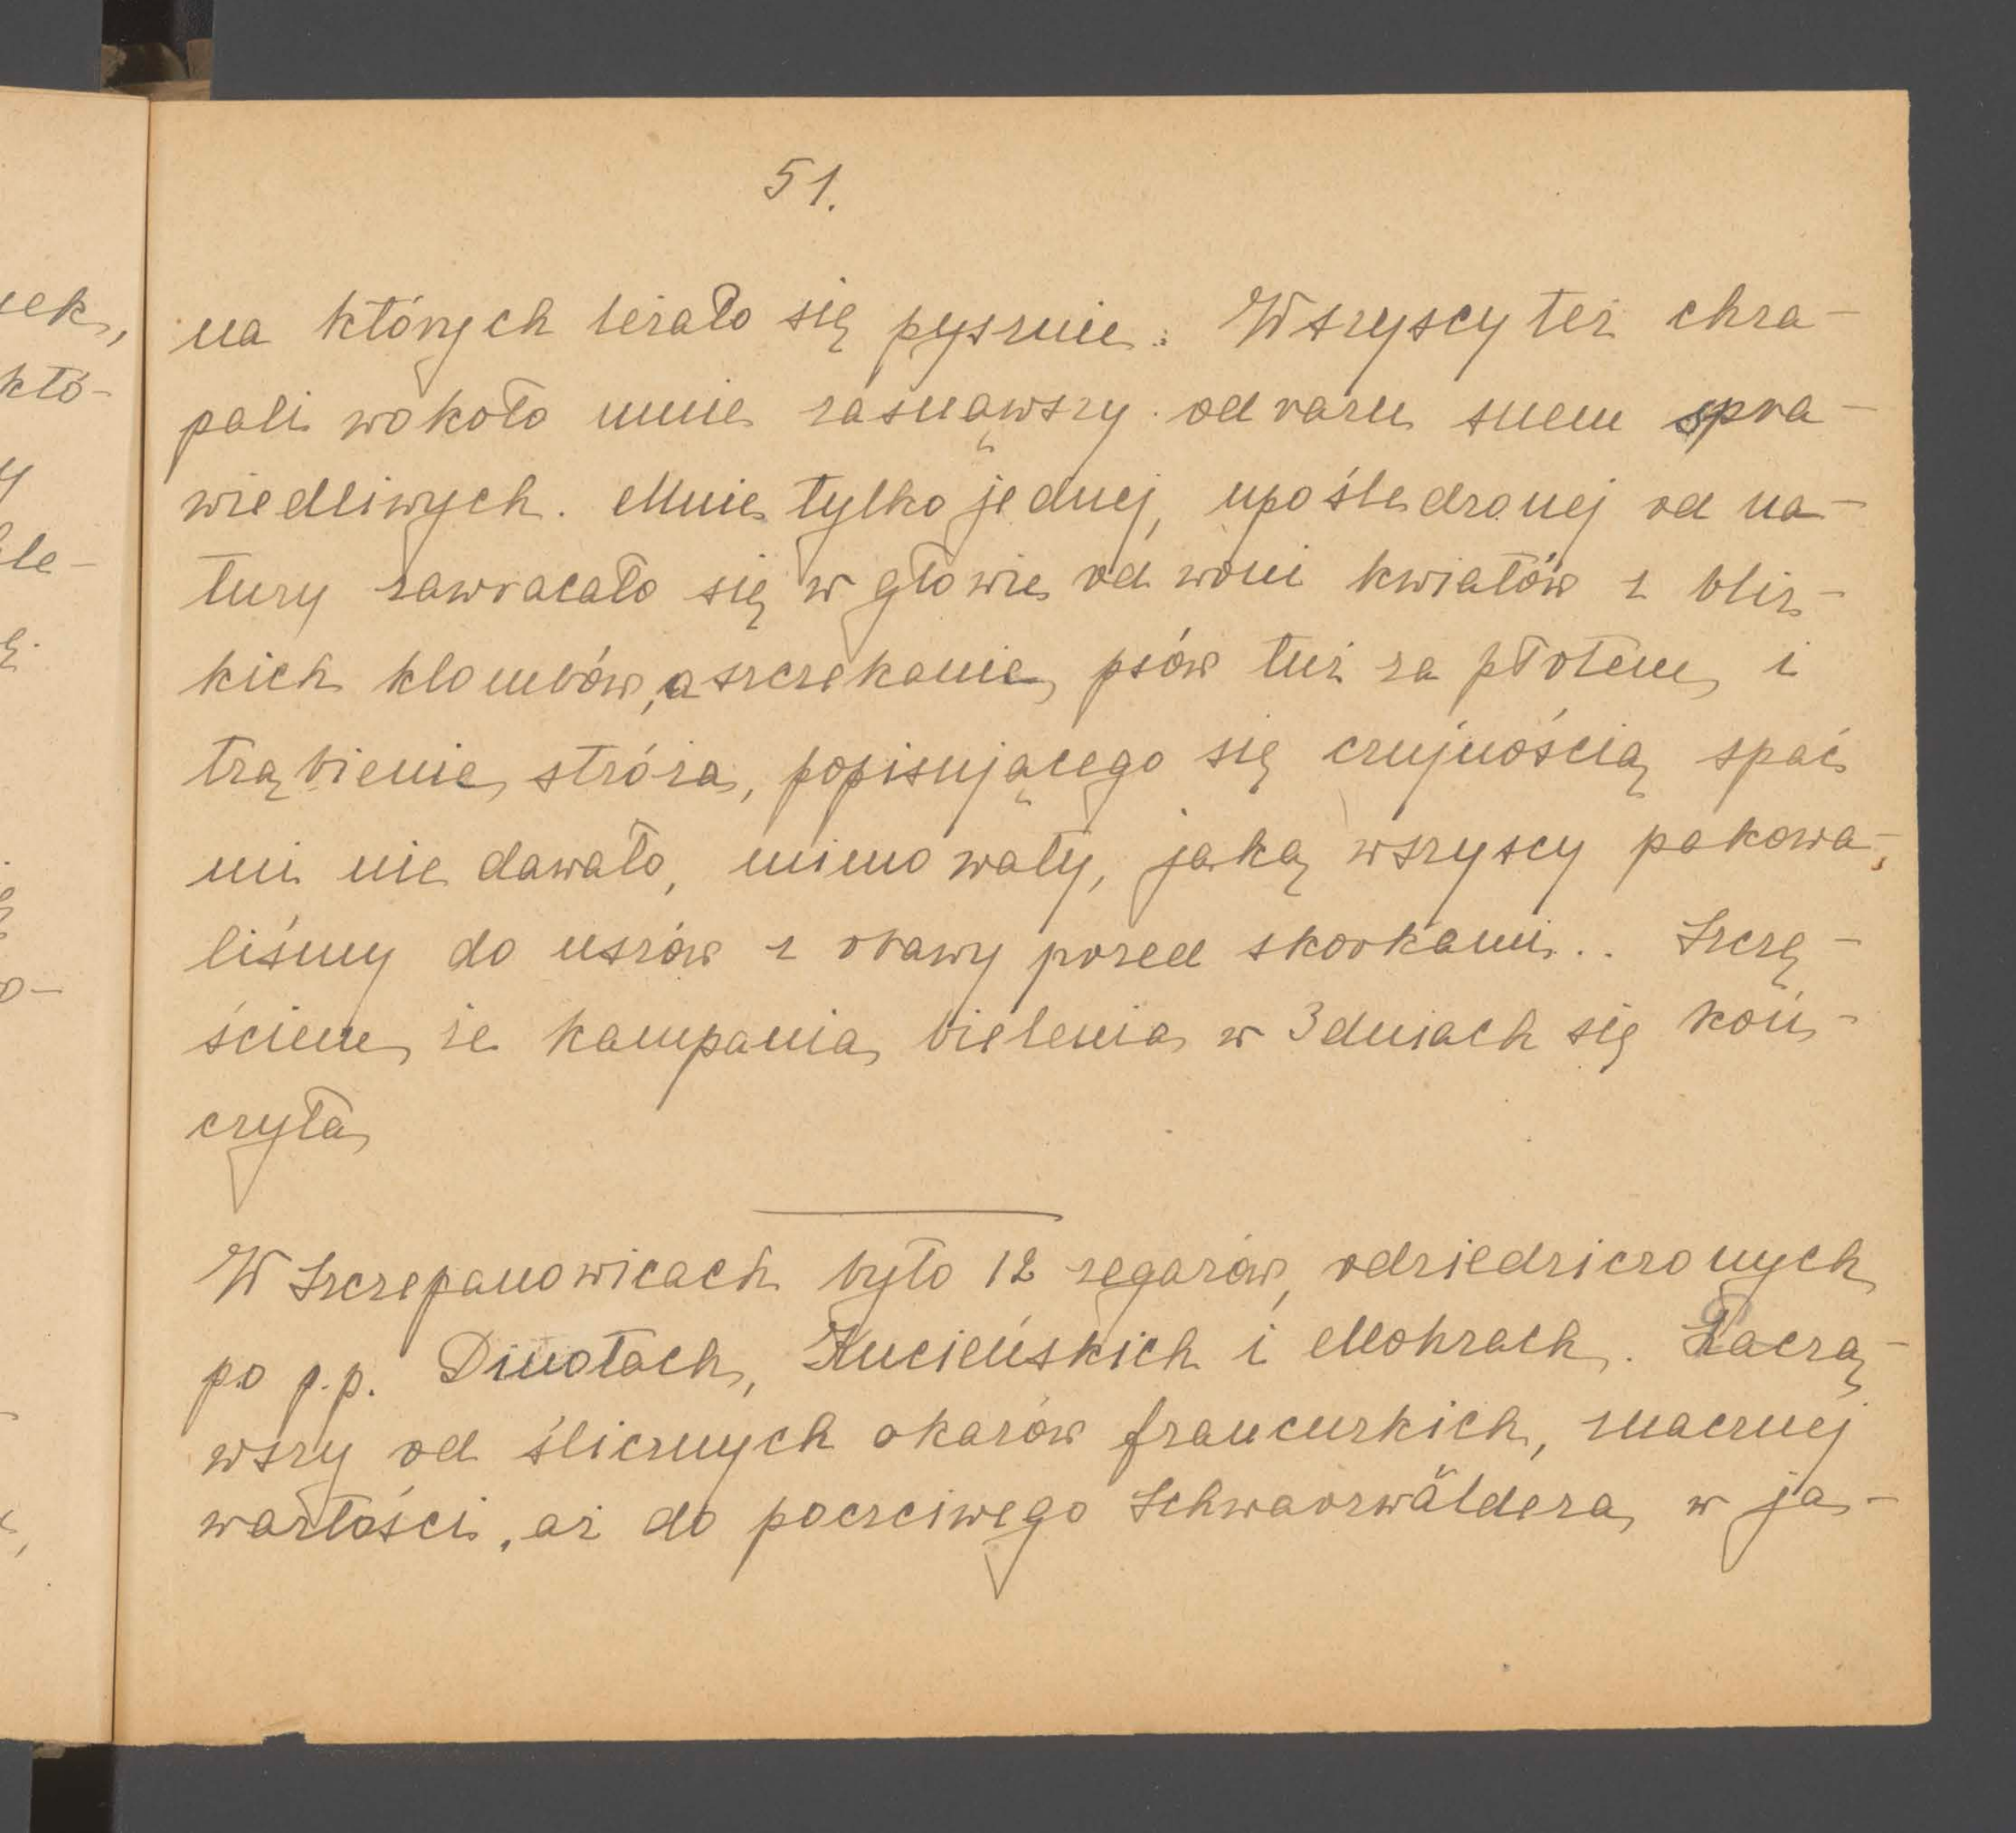 51.
na których leżało się pysznie. Wszyscy też chra-
pali wokoło mnie zasnąwszy od razu snem spra-
wiedliwych. Mnie tylko jednej, upośledzonej od na-
tury zawracało się w głowie od woni kwiatów z bliz-
kich klombów, a szczekanie psów tuż za płotem i
trąbienie stróża, popisującego się czujnością spać
mi nie dawało, mimo waty, jaką wszyscy pakowa-
liśmy do uszów z obawy przed skorkami.. Szczę-
ściem, że kampania bielenia w 3 dniach się koń-
czyła
W Szczepanowicach było 12 zegarów, odziedziczonych
po p.p. Dinotach, Kucieńskich i Mohrach. Zaczą-
wszy od ślicznych okazów francuzkich, znacznej
wartości, aż do poczciwego Schwarzwäldera w ja-
ek,
któ-
y
le-
ę.
o-